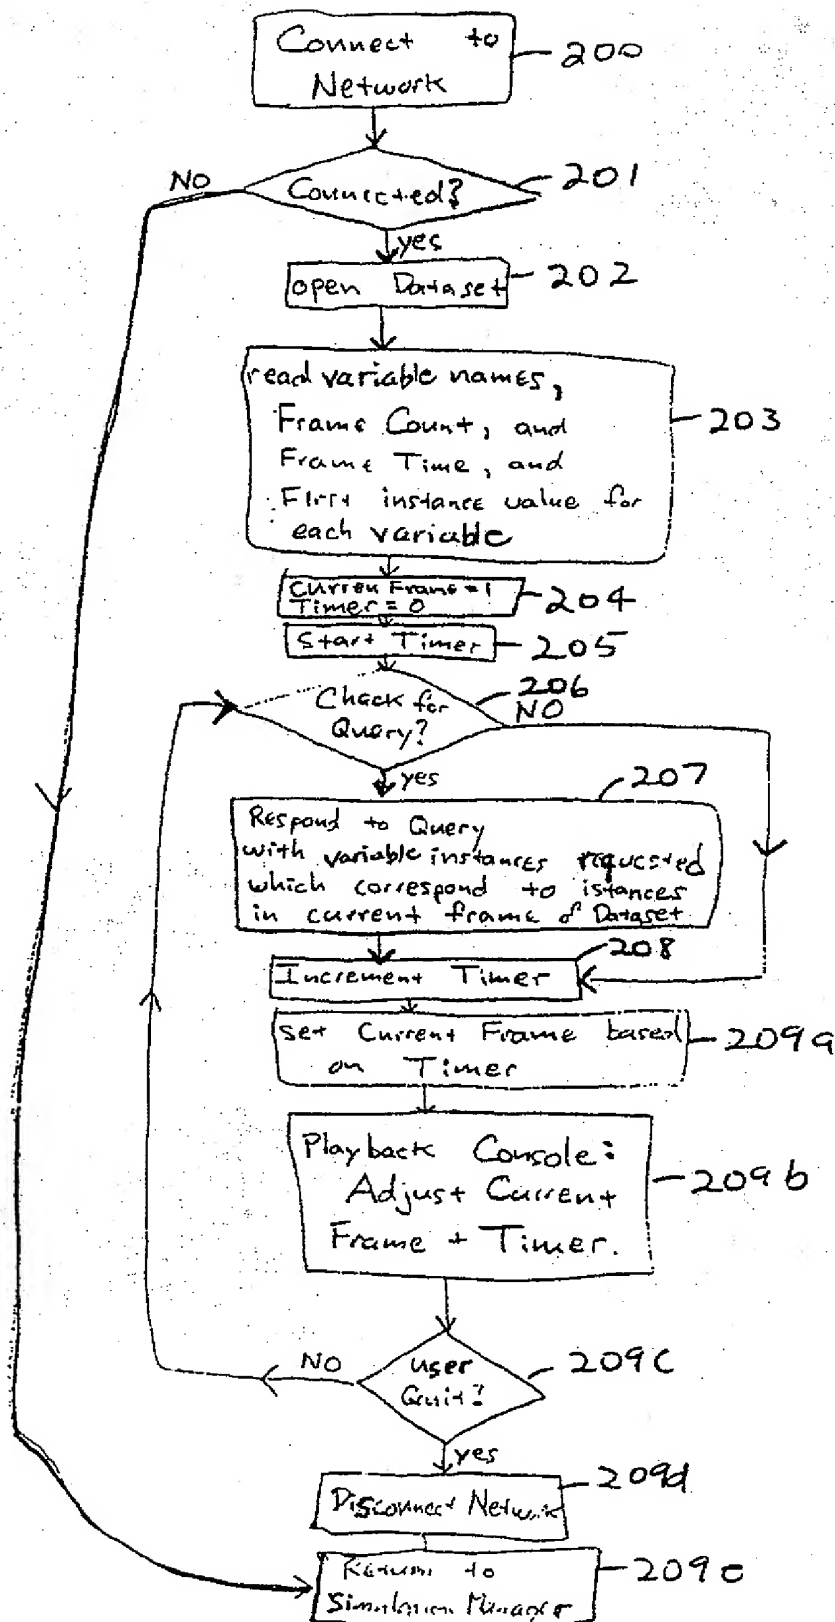 Connect to
Network
200
NO
Connected?
201
yes
open Dataset
202
read variable names,
Frame Count, and
Frame Time, and
First instance value for
each variable
203
Curren Frame = 1
Timer = 0
204
Start Timer
205
Check for
Query?
206
NO
yes
207
Respond to Query
with variable instances requested
which correspond to istances
in current frame of Dataset
208
Increment Timer
set Current Frame based
on Timer
209a
Playback Console:
Adjust Current
Frame + Timer.
209b
NO
user
Quit?
209c
yes
209d
Disconnect Network
Return to
Simulation Manager
209e